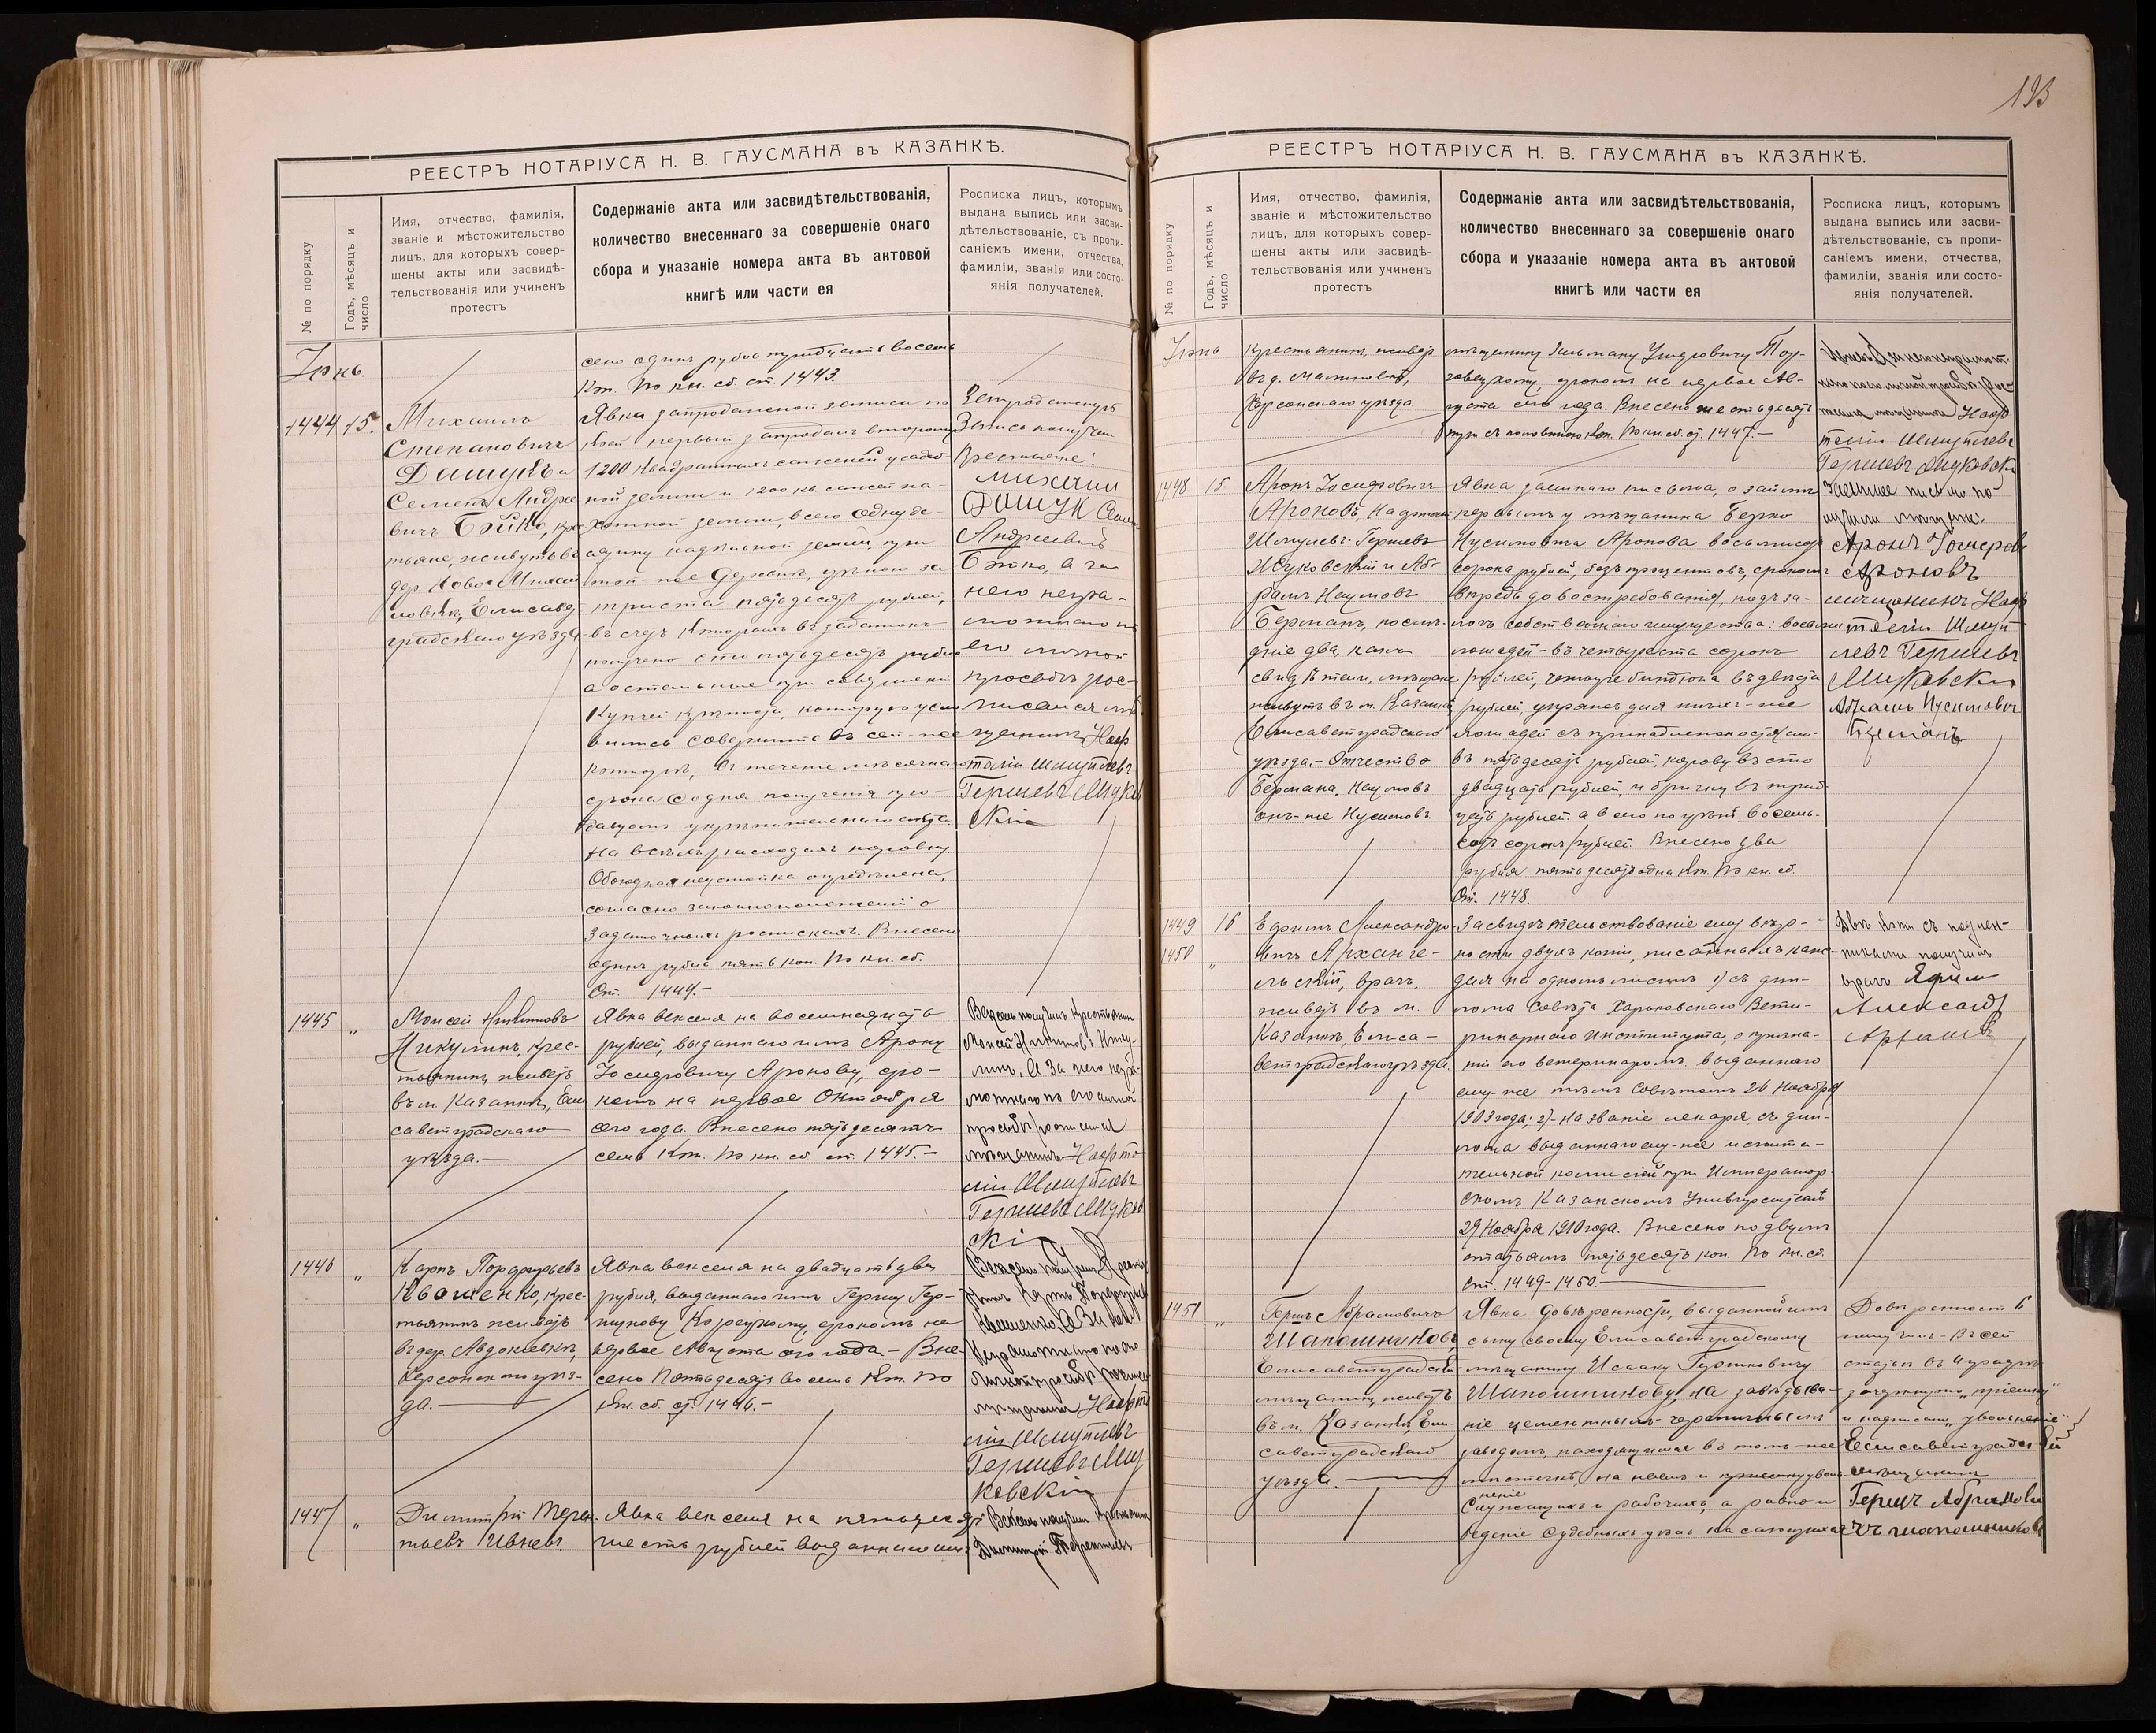 193
РЕЕСТРЪ НОТАРІУСА Н. В. ГАУСМАНА въ КАЗАНКѢ.
№ по порядку
Годъ, мѣсяцъ и
число
Имя, отчество, фамилія,
званіе и мѣстожительство
лицъ, для которыхъ совер-
шены акты или засвидѣ-
тельствованія или учиненъ
протестъ
Содержаніе акта или засвидѣтельствованія,
количество внесеннаго за совершеніе онаго
сбора и указаніе номера акта въ актовой
книгѣ или части ея
Росписка лицъ, которымъ
выдана выпись или засви-
дѣтельствованіе, съ пропи-
саніемъ имени, отчества,
фамиліи, званія или состо-
янія получателей.
Іюнь
сено одинъ рубль тридцать восемь
Коп. По кн. сб. ст. 1443.
1444 15.
Михаилъ
Степановичъ
Дашукъ и
Семенъ Андрее
вичъ Бойко, крес
тьяне, живутъ въ
дер. Ново-
Елисавет
градскаго уѣзда
Явка запроданной записи по
коей первый запродалъ второму
1200 квадратныхъ саженей усадеб
ной земли и 1200 кв. сажен па-
хотной земли, всего одну де-
сятину надѣльной земли, при
той-же деревнѣ, цѣною за
триста пятьдесятъ рублей,
въ счетъ которыхъ въ задатокъ
получено сто пятьдесятъ рублей
а остальные при совершеніи
Купчей крѣпости, которую усло
вились совершить въ сей-же
конторѣ, въ теченіе мѣсячнаго
срока со дня полученія про-
давцомъ укрѣпительнаго акта.
На всѣ расходы поровну.
Обоюдная неустойка опредѣлена,
согласно законоположеній о
задаточныхъ роспискахъ. Внесено
одинъ рубль пять коп. По кн. сб.
Ст. 1444.-
Запроданную
Запись получили
Крестьяне:
Михаил
Дашук Семен
Андреевичъ
Бойко, а за
него негра-
мотнаго по
его личной
просьбѣ рос-
писался мѣ
щанинъ Наф
талій Шмулевъ
Гершевъ Жуков
скій
1445 „
Моисей Никитовъ
Никулинъ, крес-
тьянинъ, живетъ
въ м. Казанкѣ, Ели
саветградскаго
уѣзда.-
Явка векселя на восемнадцать
рублей, выданнаго имъ Арону
Іосифовичу Аронову, сро-
комъ на первое Октября
сего года. Внесено пятьдесятъ
семь Коп. По кн. сб. ст. 1445.-
Вексель получилъ Крестьянинъ
Моисей Никитовъ Нику-
линъ. А за него негра-
мотнаго по его личной
просьбѣ росписался
мѣщанинъ Нафта
лій Шмулевъ
Гершевъ Жуков
скі
1446 „
Карпъ Порфирьевъ
Квашенко, крес-
тьянинъ живетъ
въ дер. Авдотьевкѣ,
Херсонскаго уѣз-
да.-
Явка векселя на двадцать два
рубля, выданнаго имъ Гершу Гер-
шукову Корецкому, срокомъ на
первое Августа сего года.- Вне-
сено Пятьдесятъ восемь Коп. По
кн. сб. ст. 1446.-
Вексель получилъ Крестья
нинъ Карпъ Порфирьевъ
Квашенко. А за него
Неграмотнаго по его
личной просьбѣ росписался
мѣщанинъ Нафта
лій Шмулевъ
Гершевъ Жу
ковскій
1447 „
Димитрій Терен-
тьевъ Ивлевъ.
Явка векселя на пятьдесят
шесть рублей выданнаго имъ
Вексель получилъ крестьянинъ
Дмитрій Терентьевъ
РЕЕСТРЪ НОТАРІУСА Н. В. ГАУСМАНА въ КАЗАНКѢ.
№ по порядку
Годъ, мѣсяцъ и
число
Имя, отчество, фамилія,
званіе и мѣстожительство
лицъ, для которыхъ совер-
шены акты или засвидѣ-
тельствованія или учиненъ
протестъ
Содержаніе акта или засвидѣтельствованія,
количество внесеннаго за совершеніе онаго
сбора и указаніе номера акта въ актовой
книгѣ или части ея
Росписка лицъ, которымъ
выдана выпись или засви-
дѣтельствованіе, съ пропи-
саніемъ имени, отчества,
фамиліи, званія или состо-
янія получателей.
Іюнь
Крестьянинъ, живетъ
въ д. Малиновкѣ,
Херсонскаго уѣзда
мѣщанину
срокомъ на первое Ав-
густа сего года. Внесено шестьдесятъ
три съ половиною Коп. По кн. сб. ст. 1447.-
Ивлевъ А за него неграмот
наго по его личной просьбѣ рос-
писался мѣщанинъ Наф
талій Шмулевъ
Гершевъ Жуковскі
1448 15
Аронъ Іосифовичъ
Ароновъ, Нафталій
Шмулевъ-Гершевъ
Жуковскій и Аб-
рамъ Наумовъ
Берманъ, послѣ-
дніе два, какъ
свидѣтели, мѣщане,
живутъ въ м. Казанкѣ
Елисаветградскаго
уѣзда.- Отчество
Бермана. Наумовъ
онъ-же Нусимовъ
Явка заемнаго письма, о займѣ
первымъ у мѣщанина Берко
Нусимовича Аронова восьмисотъ
сорока рублей, безъ процентовъ, срокомъ
впредь до востребованія, подъ за-
логъ собственнаго имущества: восьми
лошадей - въ четыреста сорокъ
рублей, четыре биндюга въ двѣсти
рублей, упряжь для тѣхъ-же
лошадей съ принадлежностями
въ пятьдесятъ рублей, корову въ сто
двадцать рублей, и бричку въ трид
цать рублей а всего по цѣнѣ восемь-
сотъ сорокъ рублей. Внесено два
рубля пятьдесятъ одна Коп. По кн. сб.
Ст. 1448.
Заемное письмо по-
лучили мѣщане:
Аронъ Іосифовъ
Ароновъ
мещанинъ Наф
талій Шмул
левъ Гершевъ
Жуковски
Абрамъ Нусимовъ
Берманъ
1449 16
1450 „
Ефимъ Александро-
вичъ Арханге-
льскій, врачъ,
живетъ въ м.
Казанкѣ, Елиса-
ветградскаго уѣзда.
Засвидѣтельствованіе ему вѣр-
ности двухъ копій, писанныхъ каж-
дая на одномъ листѣ 1) съ дип-
лома Совѣта Харьковскаго Вете-
ринарнаго института, о призна-
ніи его ветеринаромъ, выданнаго
ему-же тѣмъ Совѣтомъ 26 Ноября
1903 года; 2)- на званіе лекаря, съ дип-
лома выданнаго ему-же испыта-
тельной комиссіей при Император-
скомъ Казанскомъ Университетѣ
29 Ноября 1910 года. Внесено по двумъ
статьямъ пятьдесятъ коп. По кн. сб.
Ст. 1449-1450.-
Двѣ копіи съ подлин-
никами получилъ
врачъ Ефим
Александр
1451 „
Гершъ Абрамовичъ
Шапошниковъ,
Елисаветградскій
мѣщанинъ, живетъ
въ м. Казанкѣ, Ели-
саветградскаго
уѣзда.-
Явка довѣренности, выданной имъ
сыну своему Елисаветградскому
мѣщанину Исааку Гершковичу
Шапошникову, на завѣдыва-
ніе цементнымъ-черепичнымъ
заводомъ, находящимся въ томъ-же
мѣстечкѣ, на наемъ и пріемку уволь-
неніе
служащихъ и рабочихъ, а равно и
веденіе судебныхъ дѣлъ
Довѣренность
получилъ - Въ сей
статьи въ 4 графѣ
зачеркнуто „пріемку"
и надписано „увольненіе"
Елисаветградскій
мѣщанинъ
Герш Абрамови
чъ Шапошников